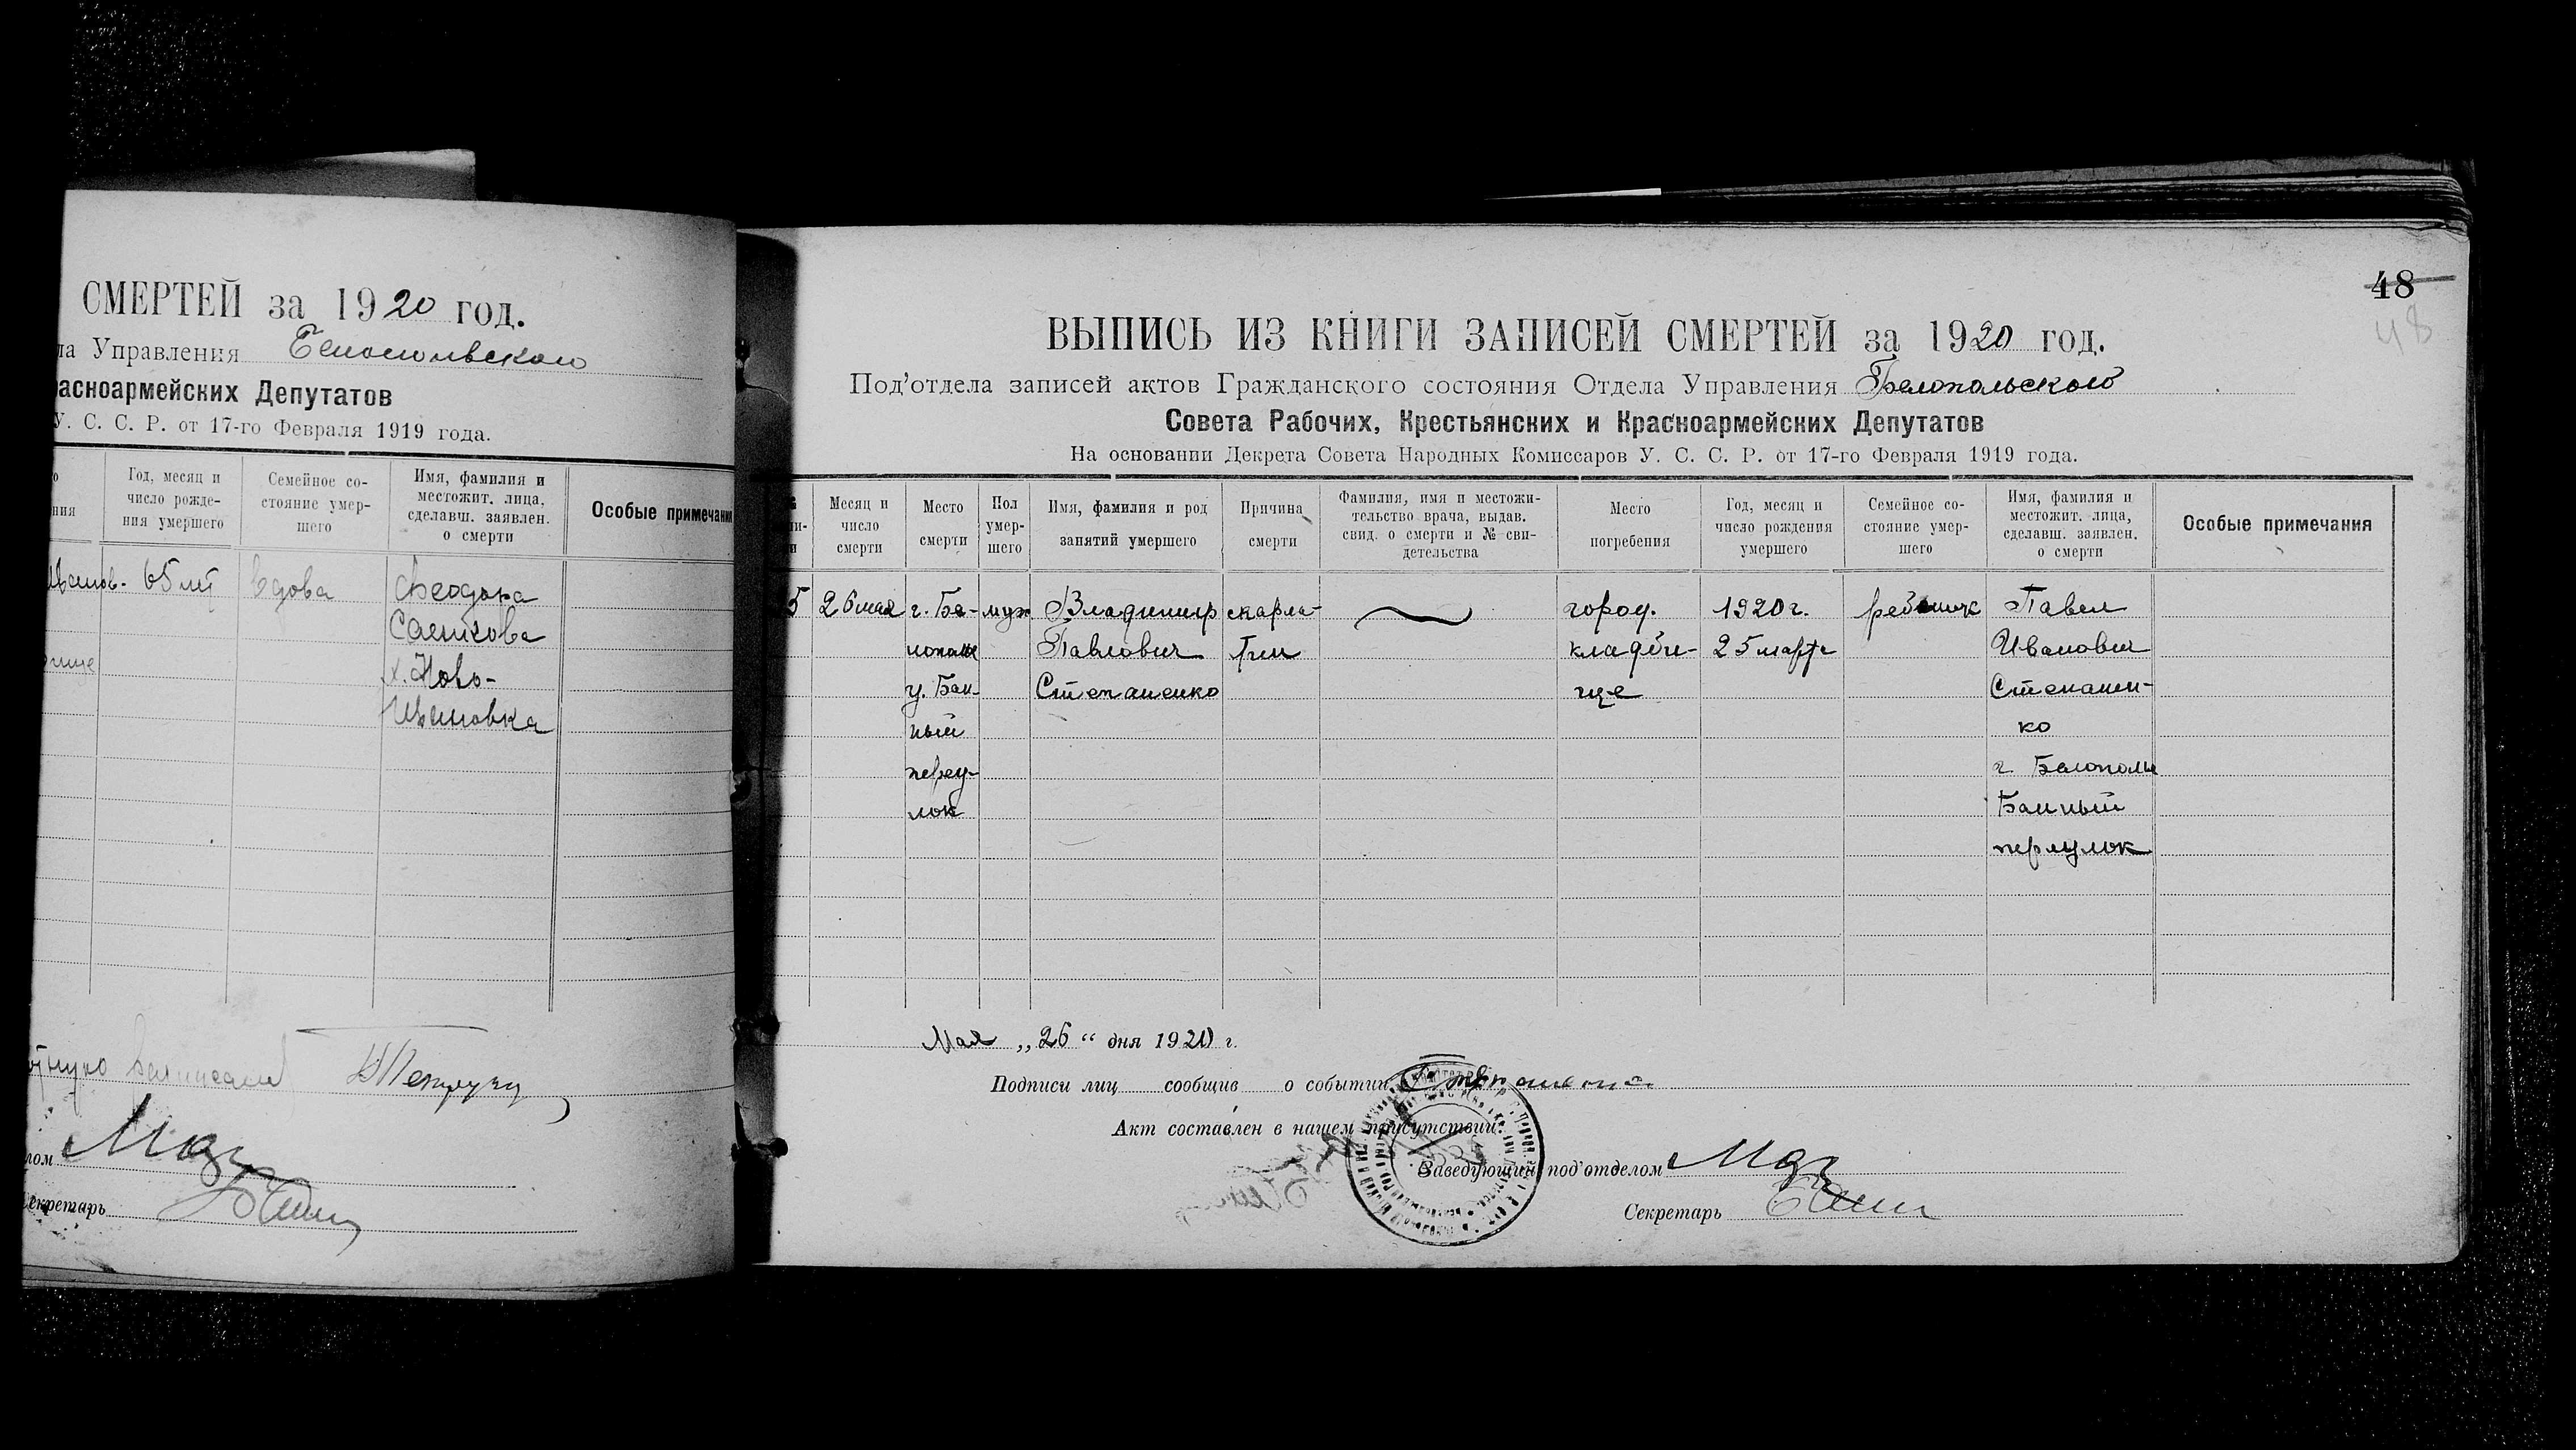 СМЕРТЕЙ за 1920 год.
Управления Белопольского
Депутатов
У. С. С. Р. от 17-го Февраля 1919 года.
Год, месяц и число рожде- ния умершего
Семейное со- стояние умер- шего
Имя, фамилия и местожит. лица, сделавш. заявлен. о смерти
Особые примечания
65 лет вдова Феодора
х. Ново-
Ивановка
Секретарь
48
48
ВЫПИСЬ ИЗ КНИГИ ЗАПИСЕЙ СМЕРТЕЙ за 1920 год.
Под'отдела записей актов Гражданского состояния Отдела Управления Белопольского
Совета Рабочих, Крестьянских и Красноармейских Депутатов
На основании Декрета Совета Народных Комиссаров У. С. С. Р. от 17-го Февраля 1919 года.
Месяц и число смерти
Место смерти
Пол умер- шего
Имя, фамилия и род занятий умершего
Причина смерти
Фамилия, имя и местожи- тельство врача, выдав. свид. о смерти и № сви- детельства
Место погребения
Год, месяц и число рождения умершего
Семейное со- стояние умер- шего
Имя, фамилия и местожит. лица, сделавш. заявлен. о смерти
Особые примечания
5 26 мая г. Бе- муж Владимир скарла- город. 1920 г. ребенок Павел
лополье Павлович тин кладби- 25 марта Иванович
у. Бан- Степаненко ще Степанен-
ный ко
переу- г. Белополье
лок Банный
переулок
Мая „26“ дня 1920 г.
Подписи лиц сообщив о событии Степаненко
Акт составлен в нашем присутствии:
Заведующий под'отделом
Секретарь